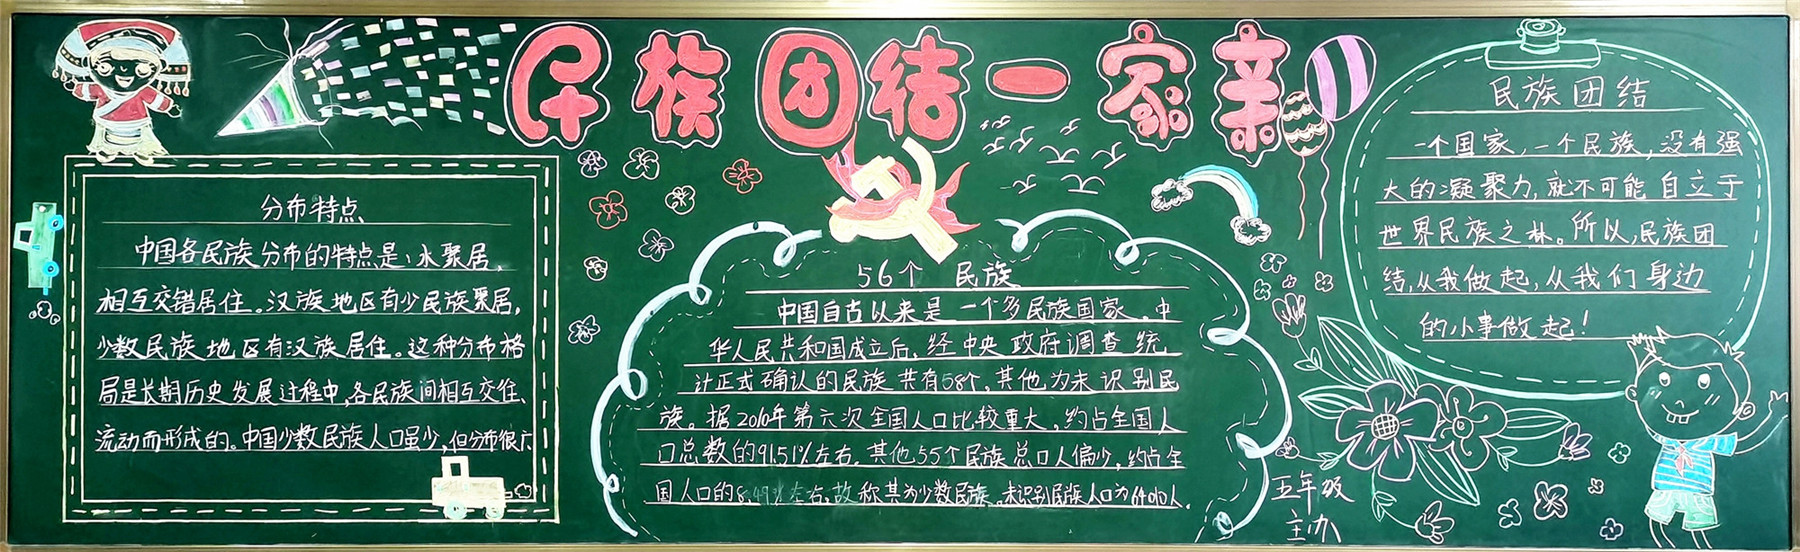 民族团结一家亲
分布特点
中国各民族分布的特点是:水聚居,
相互交错居住。汉族地区有少民族聚居,
少数民族地区有汉族居住。这种分布格
局是长期历史发展过程中,各民族间相互交往、
流动而形成的。中国少数民族人口虽少,但分布很广
56个 民族
中国自古以来是一个多民族国家。中
华人民共和国成立后,经中央政府调查统
计正式确认的民族共有58个,其他为未识别民
族。据2010年第六次全国人口比较重大,约占全国人
口总数的91.51%左右。其他55个民族总口人偏少,约占全
国人口的8.49%左右,故称其为少数民族。未识别民族人口为64万人.
民族团结
一个国家,一个民族,没有强
大的凝聚力,就不可能自立于
世界民族之林。所以,民族团
结,从我做起,从我们身边
的小事做起!
五年级
主办